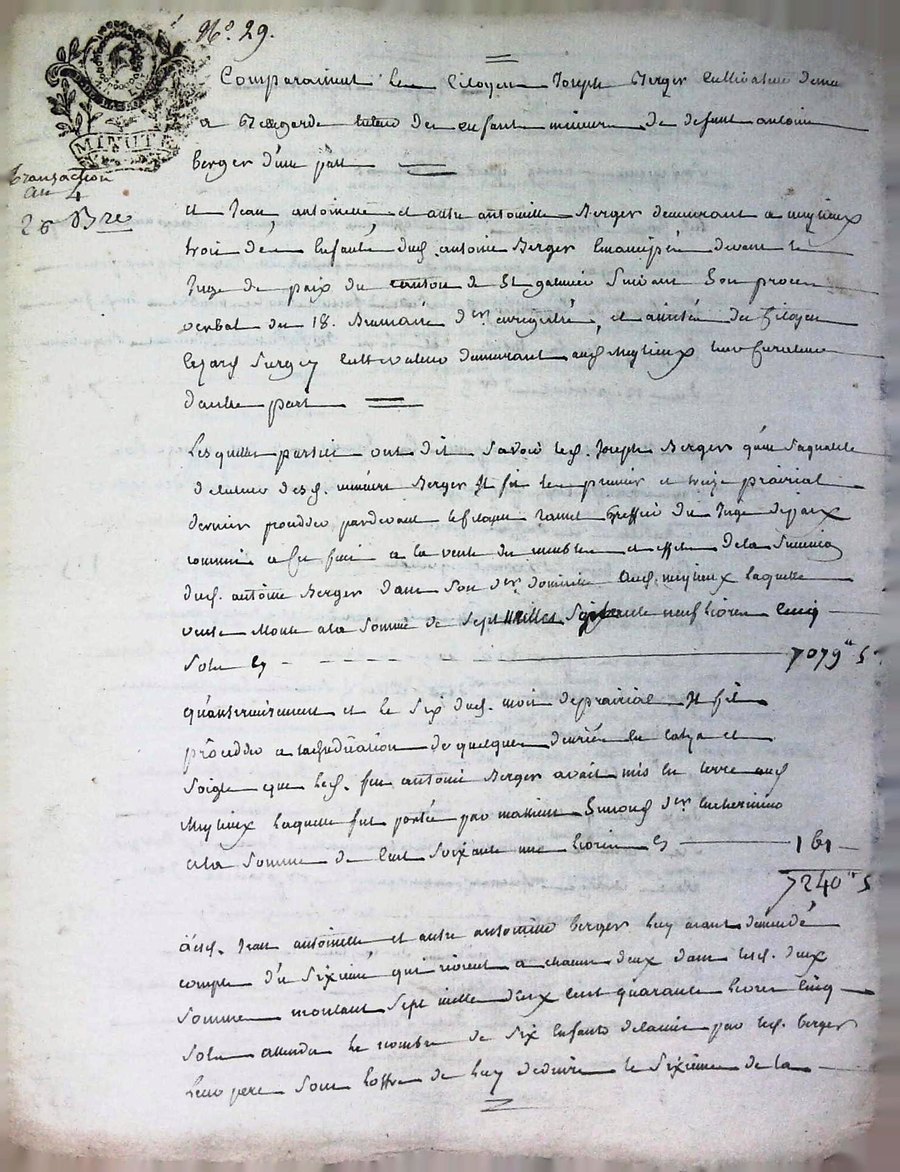 N.º 29.
MINUTE
transaction
an 4
26 Bre
Comparaissent le Citoyen Joseph Berger cultivateur demt
a tuteur des enfants mineurs de defunt antoine
berger d'une part
et Jean, antoinette, et autre antoinette Berger demeurant a meylieux
trois des Enfants dud. antoine Berger Emancipés devant le
Juge de paix du canton de St galmier Suivant Son proces
verbal du 18. Brumaire der. enregistré, et assistés du Citoyen
cultivateur demeurant aud. Meylieux leur Curateur
d'autre part
Lesquelles parties ont dit Savoir led. Joseph Berger qu'en Sa qualité
de tuteur desd. mineurs Berger Il fit le premier et treize prairial
dernier proceder pardevant le Citoyen greffier du Juge de paix
commis a ce faire a la vente des meubles et effets de la Succession
dud. antoine Berger dans Son der. domicile aud. meylieux laquelle
vente Monte a la Somme de Sept Milles Septante neuf livres Cinq
Sols Cy 7079" 5
qu'ensuitement et le Six dud. mois de prairial Il fit
proceder a l'adjudication de quelques denrées en et
Soigle que led. feu antoine Berger avait mis en terre aud.
Meylieux laquelle fut portée par mathieu der. encherisseur
a la Somme de Cent Soixante une livres Cy 161
7240" 5
Lesd. Jean antoinette et autre antoinette berger luy ayant demandé
compte du Sixieme qui revient a chacun d'eux dans lesd. deux
Sommes montant Sept mille deux Cent quarante livres Cinq
Sols attendu le nombre de Six Enfants delaissés par led. berger
leur pere Sous l'offre de luy deduire le Sixieme de la